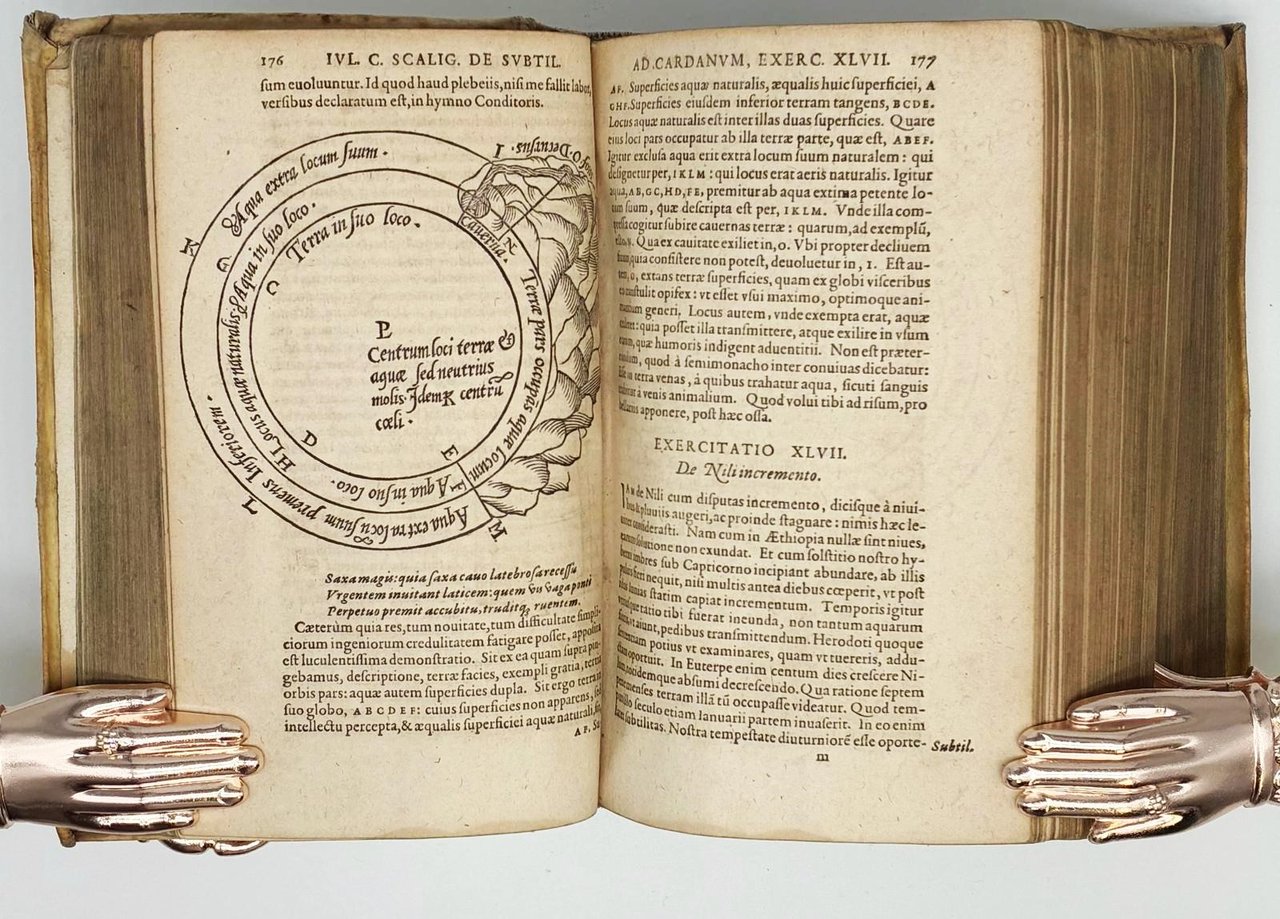 176 IVL. C. SCALIG. DE SVBTIL.
sum euoluuntur. Id quod haud plebeiis, nisi me fallit labor,
versibus declaratum est, in hymno Conditoris.
Aqua extra locum suum.
Aqua in suo loco.
Terra in suo loco.
I
O. Decursus.
Cauerna.
N
K
G
C
Terræ pars occupās aquæ locum
P
Centrum loci terræ &
aquæ sed neutrius
molis. Idem centrū
cœli.
Locus aquæ naturalis.
H
D
E
F
Aqua in suo loco.
L
M
Aqua extra locū suum premens Inferiorem.
Saxa magis: quia saxa cauo latebrosa recessu
Vrgentem inuitant laticem: quem vis vaga ponti
Perpetuo premit accubitu, truditq; ruentem.
Cæterùm quia res, tum nouitate, tum difficultate simpli-
ciorum ingeniorum credulitatem fatigare posset, apposita
est luculentissima demonstratio. Sit ex ea quam supra pin-
gebamus, descriptione, terræ facies, exempli gratia, tertia
orbis pars: aquæ autem superficies dupla. Sit ergo terra in
suo globo, ABCDEF: cuius superficies non apparens, sed
intellectu percepta, & æqualis superficiei aquæ naturali, sit,
AF. Su-
AD CARDANVM, EXERC. XLVII. 177
AF. Superficies aquæ naturalis, æqualis huic superficiei, A
GHF. Superficies eiusdem inferior terram tangens, BCDE.
Locus aquæ naturalis est inter illas duas superficies. Quare
eius loci pars occupatur ab illa terræ parte, quæ est, ABEF.
Igitur exclusa aqua erit extra locum suum naturalem: qui
designetur per, IKLM: qui locus erat aeris naturalis. Igitur
aqua, AB, GC, HD, FE, premitur ab aqua extima petente lo-
cum suum, quæ descripta est per, IKLM. Vnde illa com-
pressa cogitur subire cauernas terræ: quarum, ad exemplū,
Qua ex cauitate exiliet in, O. Vbi propter decliuem
situm, quia consistere non potest, deuoluetur in, I. Est au-
tem, O, extans terræ superficies, quam ex globi visceribus
extulit opifex: vt esset vsui maximo, optimoque ani-
mantium generi. Locus autem, vnde exempta erat, aquæ
quia posset illa transmittere, atque exilire in vsum
quæ humoris indigent aduentitii. Non est præter-
eundum, quod à semimonacho inter conuiuas dicebatur:
in terra venas, à quibus trahatur aqua, sicuti sanguis
à venis animalium. Quod volui tibi ad risum, pro
bellariis apponere, post hæc ossa.
EXERCITATIO XLVII.
De Nili incremento.
IAm de Nili cum disputas incremento, dicisque à niui-
bus & pluuiis augeri, ac proinde stagnare: nimis hæc le-
uiter considerasti. Nam cum in Æthiopia nullæ sint niues,
earum solutione non exundat. Et cum solstitio nostro hy-
berni imbres sub Capricorno incipiant abundare, ab illis
fieri nequit, nisi multis antea diebus cœperit, vt post
statim capiat incrementum. Temporis igitur
ratio tibi fuerat ineunda, non tantum aquarum
aiunt, pedibus transmittendum. Herodoti quoque
sententiam potius vt examinares, quam vt tuereris, addu-
oportuit. In Euterpe enim centum dies crescere Ni-
lum, totidemque absumi decrescendo. Qua ratione septem
menses terram illā tū occupasse videatur. Quod tem-
seculo etiam Ianuarii partem inuaserit. In eo enim
subtilitas. Nostra tempestate diuturniorē esse oporte-
m
Subtil.